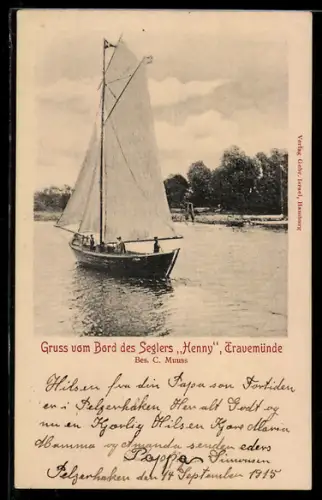 Gruss vom Bord des Seglers „Henny", Travemünde
Bes. C. Muuss
Verlag Gebr. Israel, Hamburg
Hilsen fra din Papa som Fortiden
er i Pelzerhaken Her alt Godt og
nu en Kjærlig Hilsen Kjære Maria
Mamma og Amanda senden eders
Pappa Simonsen
Pelzerhaken den 14 September 1915